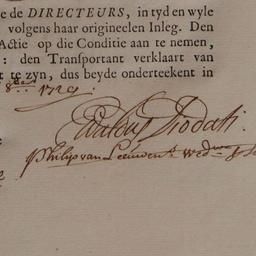 e de DIRECTEURS, in tyd en wyle
volgens haar origineelen Inleg. Den
Actie op die Conditie aan te nemen,
: den Transportant verklaart van
t te zyn, dus beyde onderteekent in
8 1729.
Philips van Leeuwen